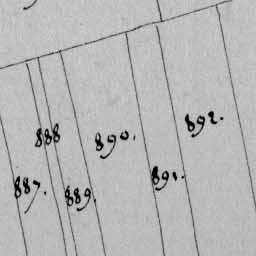 888
890.
892.
887.
889.
891.